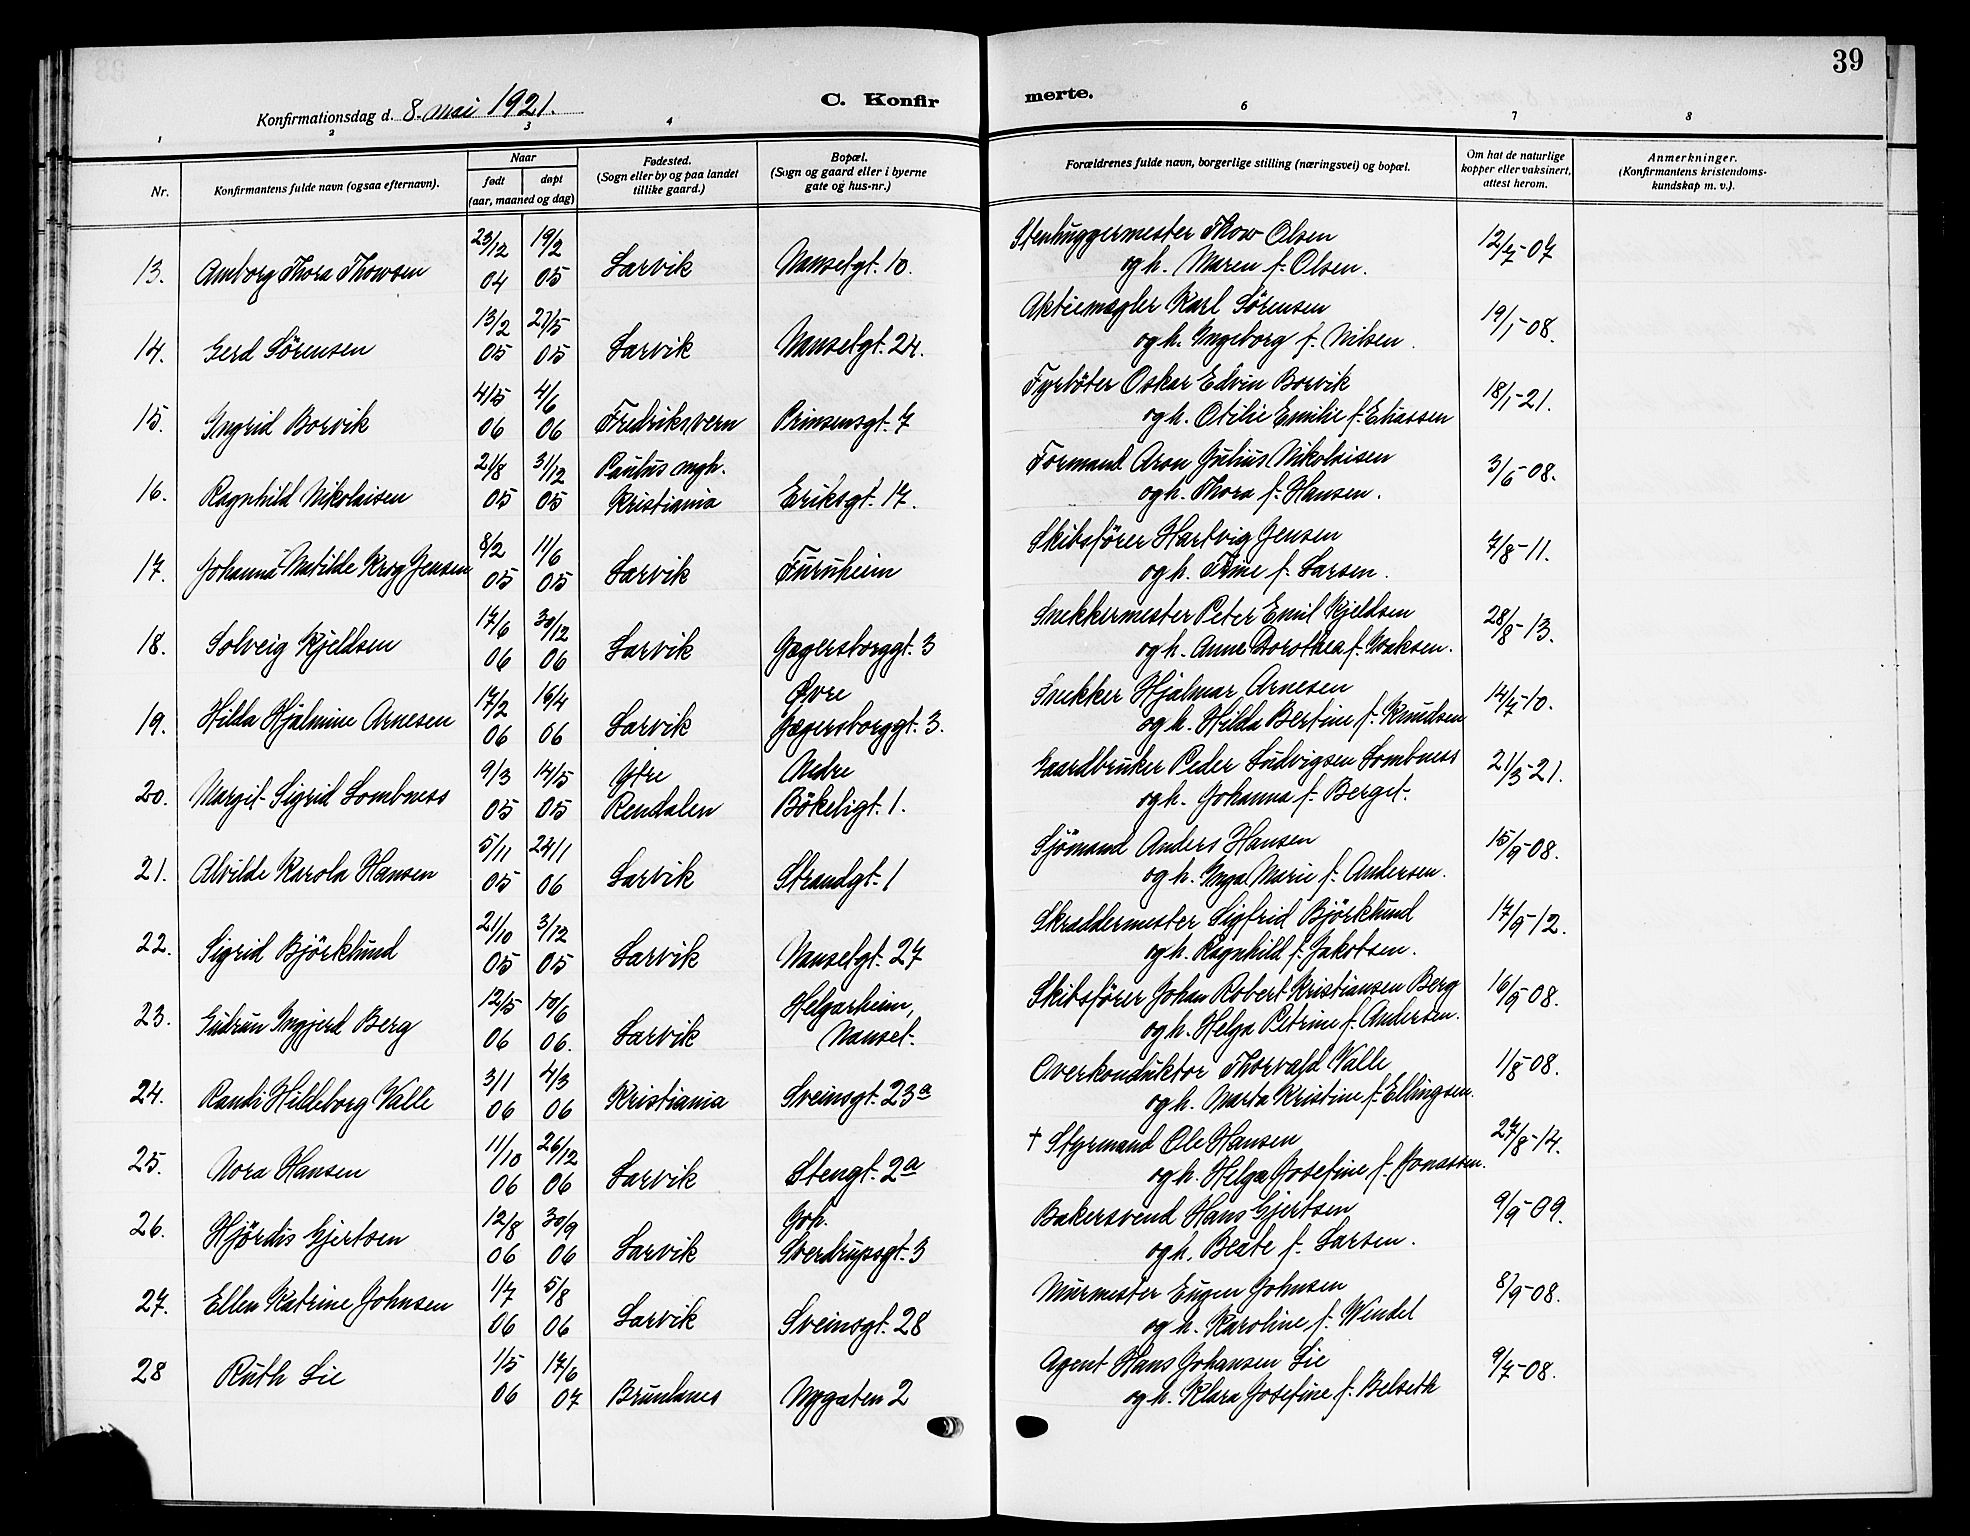 39
Konfirmationsdag d. 8. mai 1921.
C. Konfirmerte.
1 2 3 4 6 7 8
Nr.
Konfirmantens fulde navn (ogsaa efternavn).
Naar
født
døpt
(aar, maaned og dag)
Fødested.
(Sogn eller by og paa landet
tillike gaard.)
Bopæl.
(Sogn og gaard eller i byerne
gate og hus-nr.)
Forældrenes fulde navn, borgerlige stilling (næringsvei) og bopæl.
Om hat de naturlige
kopper eller vaksinert,
attest herom.
Anmerkninger.
(Konfirmantens kristendoms-
kundskap m. v.).
23/12 19/2 Stenhuggermester Thow Olsen 12/7-07
13. Amborg Thora Thowsen 04 05 Larvik Nansetgt. 10. og h. Maren f. Olsen.
13/2 27/5 Aktiemægler Karl Sörensen 19/1-08.
14. Gerd Sörensen 05 05 Larvik Nansetgt. 24. og h. Ingeborg f. Nilsen.
4/5 4/6 Fyrböter Oskar Edvin Borvik 18/1-21.
15. Ingrid Borvik 06 06 Fredriksvern Prinsensgt. 7 og h. Otilie Emilie f. Eliassen
21/8 31/12 Paulus mgh. Formand Aron Julius Nikolaisen 3/6-08.
16. Ragnhild Nikolaisen 05 05 Kristiania Eriksgt. 17. og h. Thora f. Hansen.
8/2 11/6 Skibsförer Hartvig Jensen 7/8-11.
17. Johanna Matilde Krog Jensen 05 05 Larvik Furuheim og h. Trine f. Larsen.
17/6 30/12 Snekkermester Peter Emil Kjeldsen 28/8-13.
18. Solveig Kjeldsen 06 06 Larvik Jægersborggt. 3 og h. Anne Dorothea f. Isaksen.
17/2 16/4 Øvre Snekker Hjalmar Arnesen 14/7-10.
19. Hilda Hjalmine Arnesen 06 06 Larvik Jægersborggt. 3. og h. Hilda Bertine f. Knudsen
9/3 14/5 Ytre Nedre Gaardbruker Peder Ludvigsen Lombness 21/3-21.
20. Margit Sigrid Lombness 05 05 Rendalen Bökeligt. 1. og h. Johanna f. Berget.
5/11 24/1 Sjömand Anders Hansen 15/9-08.
21. Alvilde Karola Hansen 05 06 Larvik Strandgt. 1 og h. Inga Marie f. Andersen.
21/10 3/12 Skræddermester Sigfrid Björklund 17/9-12.
22. Sigrid Björklund 05 05 Larvik Nansetgt. 27 og h. Ragnhild f. Jakobsen.
12/5 10/6 Helgarheim, Skibsförer Johan Robert Kristiansen Berg 16/9-08.
23. Gudrun Ingjerd Berg 06 06. Larvik Nanset. og h. Helga Petrine f. Andersen.
3/1 4/3 Overkonduktor Thorvald Valle 1/8-08.
24. Randi Hildeborg Valle 06 06 Kristiania Sveinsgt. 23a og h. Marta Kristine f. Ellingsen.
11/10 26/12 † Styrmand Ole Hansen 27/8-14.
25. Nora Hansen 06 06 Larvik Stengt. 2a og h. Helga Josefine f. Jonassen.
12/8 30/9 Joh. Bakersvend Hans Gjertsen 9/9-09.
26. Hjördis Gjertsen 06 06 Larvik Sverdrupsgt. 3 og h. Beate f. Larsen.
1/7 5/8 Murmester Eugen Johnsen 8/9-08.
27. Ellen Katrine Johnsen 06 06 Larvik Sveinsgt. 28 og h. Karoline f. Wendel
1/5 17/6 Agent Hans Johansen Lie 9/7-08.
28 Ruth Lie 06 07 Brunlanes Nygaten 2 og h. Klara Josefine f. Belseth